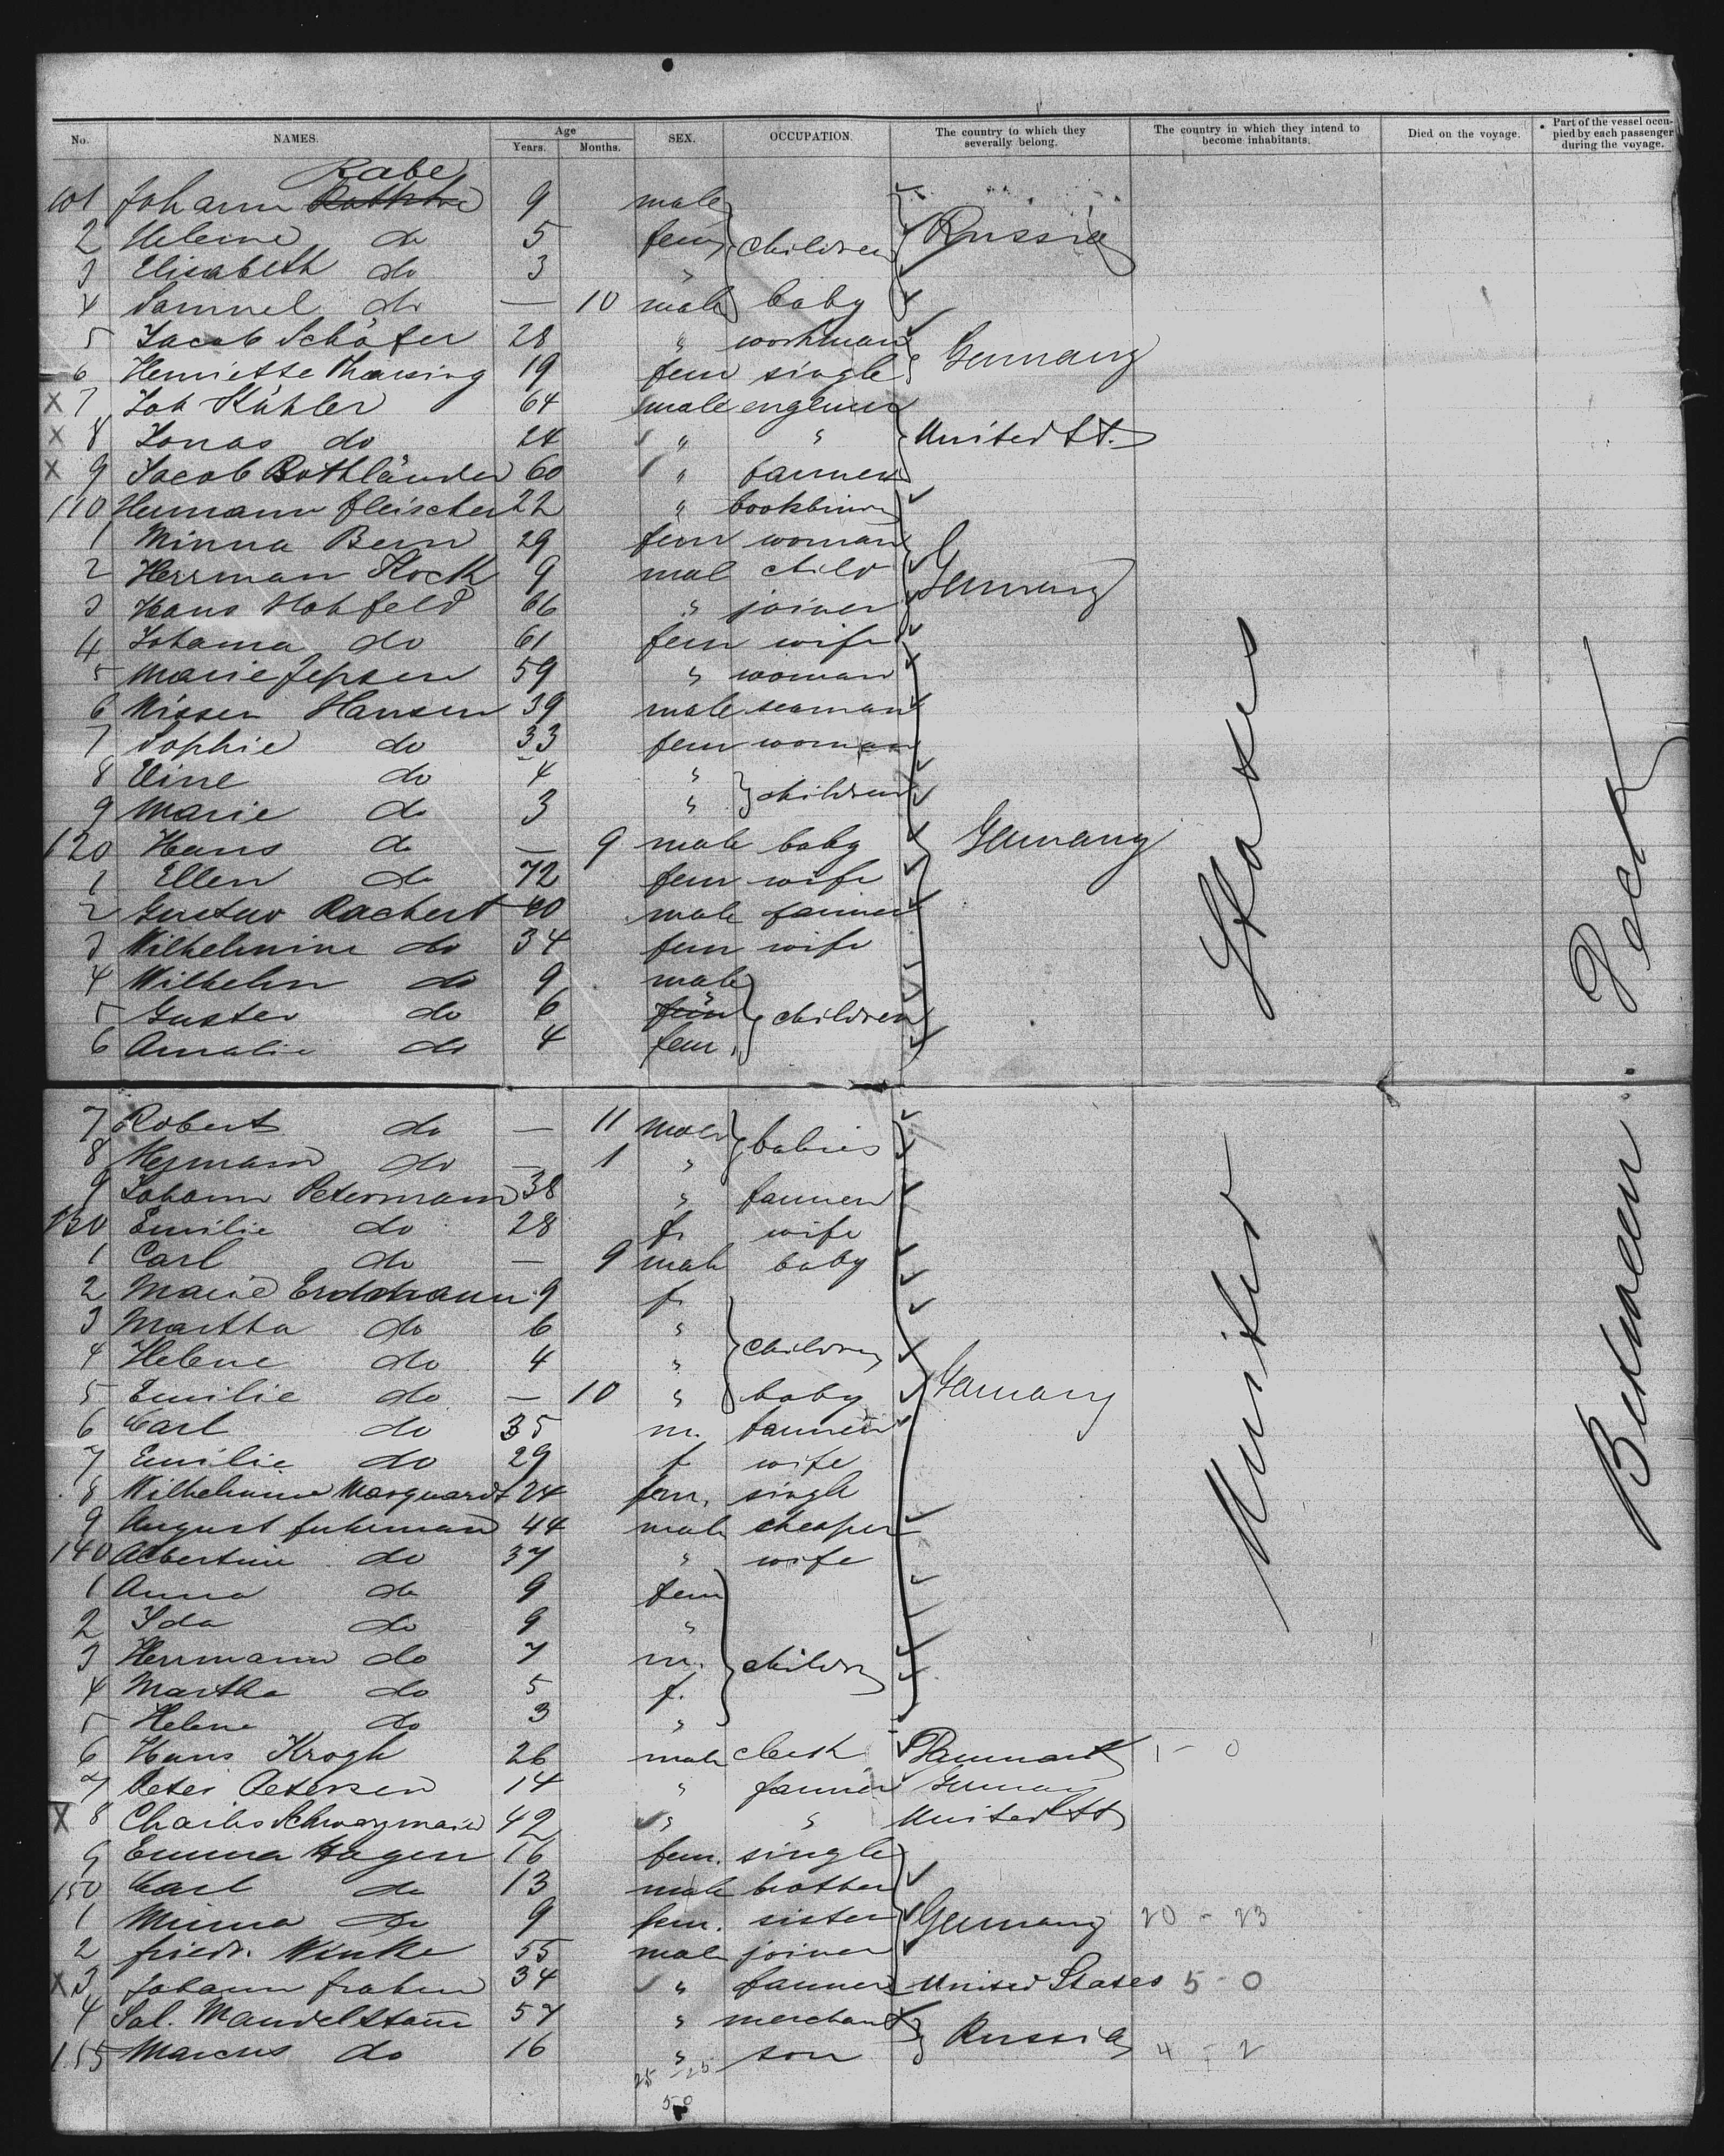 No. NAMES. Age Years. Months. SEX. OCCUPATION. The country to which they severally belong. The country in which they intend to become inhabitants. Died on the voyage. Part of the vessel occupied by each passenger during the voyage.
Rabe
101 Johann 9 male
2 Helene do 5 fem children Russia
3 Elisabeth do 3 "
4 Samuel do — 10 male baby
5 Jacob Schäfer 28 " workman Germany
6 Henriette 19 fem single
X 7 Joh Kühler 64 male engineer
X 8 Jonas do 24 " " United St.
X 9 Jacob Bothländer 60 " farmer
110 Hermann Fleischer 22 "
1 Minna Bern 29 fem woman
2 Herrman Koch 9 mal child Germany
3 Hans Hohfeld 66 " joiner
4 Johanna do 61 fem wife
5 Marie Jepsen 59 " woman
6 Nissen Hansen 39 male seaman
7 Sophie do 33 fem woman
8 do 4 " children
9 Marie do 3 "
120 Hans do — 9 male baby Germany
1 Ellen do 72 fem wife
2 Gustav Rachert 40 male farmer
3 Wilhelmine do 34 fem wife
4 Wilhelm do 9 male
5 Gustav do 6 fem " children
6 Amalie do 4 fem.
7 Robert do — 11 male babies
8 Hermann do — 1 "
9 Johann Petermann 38 " farmer
130 Emilie do 28 f. wife
1 Carl do — 9 male baby
2 Marie Erdmann 9 f.
3 Martha do 6 " children
4 Helene do 4 "
5 Emilie do — 10 " baby Germany
6 Carl do 35 m. farmer
7 Emilie do 29 f wife
8 Wilhelmine Marquardt 24 fem. single
9 August Fuhrmann 44 male
140 Albertine do 37 " wife
1 Anna do 9 fem
2 Ida do 9 "
3 Herrmann do 7 m. children
4 Martha do 5 f.
5 Helene do 3 "
6 Hans Krogh 26 male clerk Danmark 1 - 0
7 Peter Petersen 14 " farmer Germany
X 8 Charles 42 " " United St
9 Emma Hagen 16 fem. single
150 Carl do 13 male brother
1 Minna do 9 fem. sister Germany 20 - 23
2 Friedr. Winke 55 male joiner
X 3 Johann Frahm 34 " farmer United States 5 - 0
4 Sal. Mandelstam 57 " merchant Russia
155 Marcus do 16 " son 4 - 2
25 - 25
50
United
States
Between
Deck